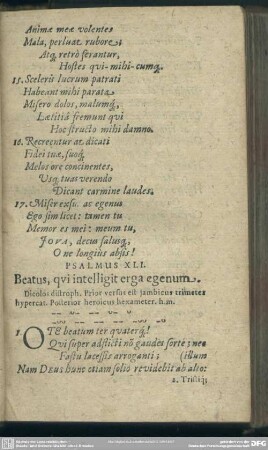 Animæ meæ volentes
Mala, perluat rubore;
Atq, retrò ferantur,
Hostes qvi-mihi-cumq.
15. Sceleris lucrum patrati
Habeant mihi parata
Misero dolos, malumq,
Lætitiâ fremunt qvi
Hoc structo mihi damno.
16. Recreentur at dicati
Fidei tuæ, suoq,
Melos ore concinentes,
Usq, tuas verendo
Dicant carmine laudes.
17. Miser exsu. ac egenus
Ego sim licet: tamen tu
Memor es mei: meum tu,
JOVA, decus salusq,
O ne longius absis!
PSALMUS XLI.
Beatus, qvi intelligit erga egenum.
Dicolos distroph. Prior versus est jambicus trimeter
hypercat. Posterior heroicus hexameter. h.m.
1. O TE beatum ter quaterq,!
Qvi super adflicti nō gaudes sorte; nec
Fastu lacessis arroganti; (illum
Nam DEUS hunc etiam solio revidebit ab alto:
2. Tristiq;